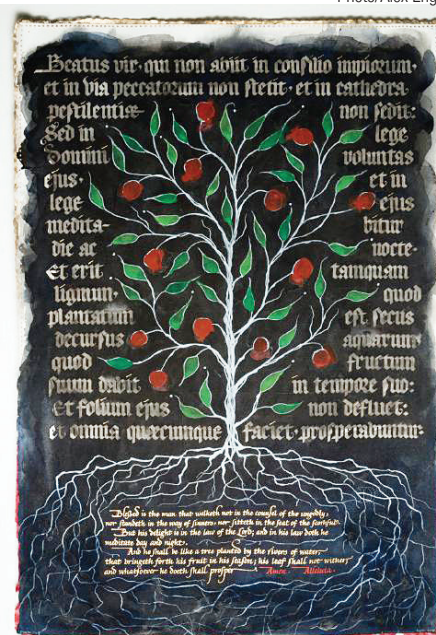 Beatus vir qui non abiit in consilio impiorum·
et in via peccatorum non stetit· et in cathedra
pestilentiæ non sedit:
Sed in lege
Domini voluntas
ejus· et in
lege ejus
medita- bitur
die ac nocte·
Et erit tamquam
lignum· quod
plantatum est secus
decursus aquarum·
quod fructum
suum dabit in tempore suo:
Et folium ejus non defluet:
et omnia quæcumque faciet· prosperabuntur·
Blessed is the man that walketh not in the counsel of the ungodly,
nor standeth in the way of sinners, nor sitteth in the seat of the scornful.
But his delight is in the law of the Lord; and in his law doth he
meditate day and night.
And he shall be like a tree planted by the rivers of water,
that bringeth forth his fruit in his season; his leaf shall not wither;
and whatsoever he doeth shall prosper Amen Alleluia